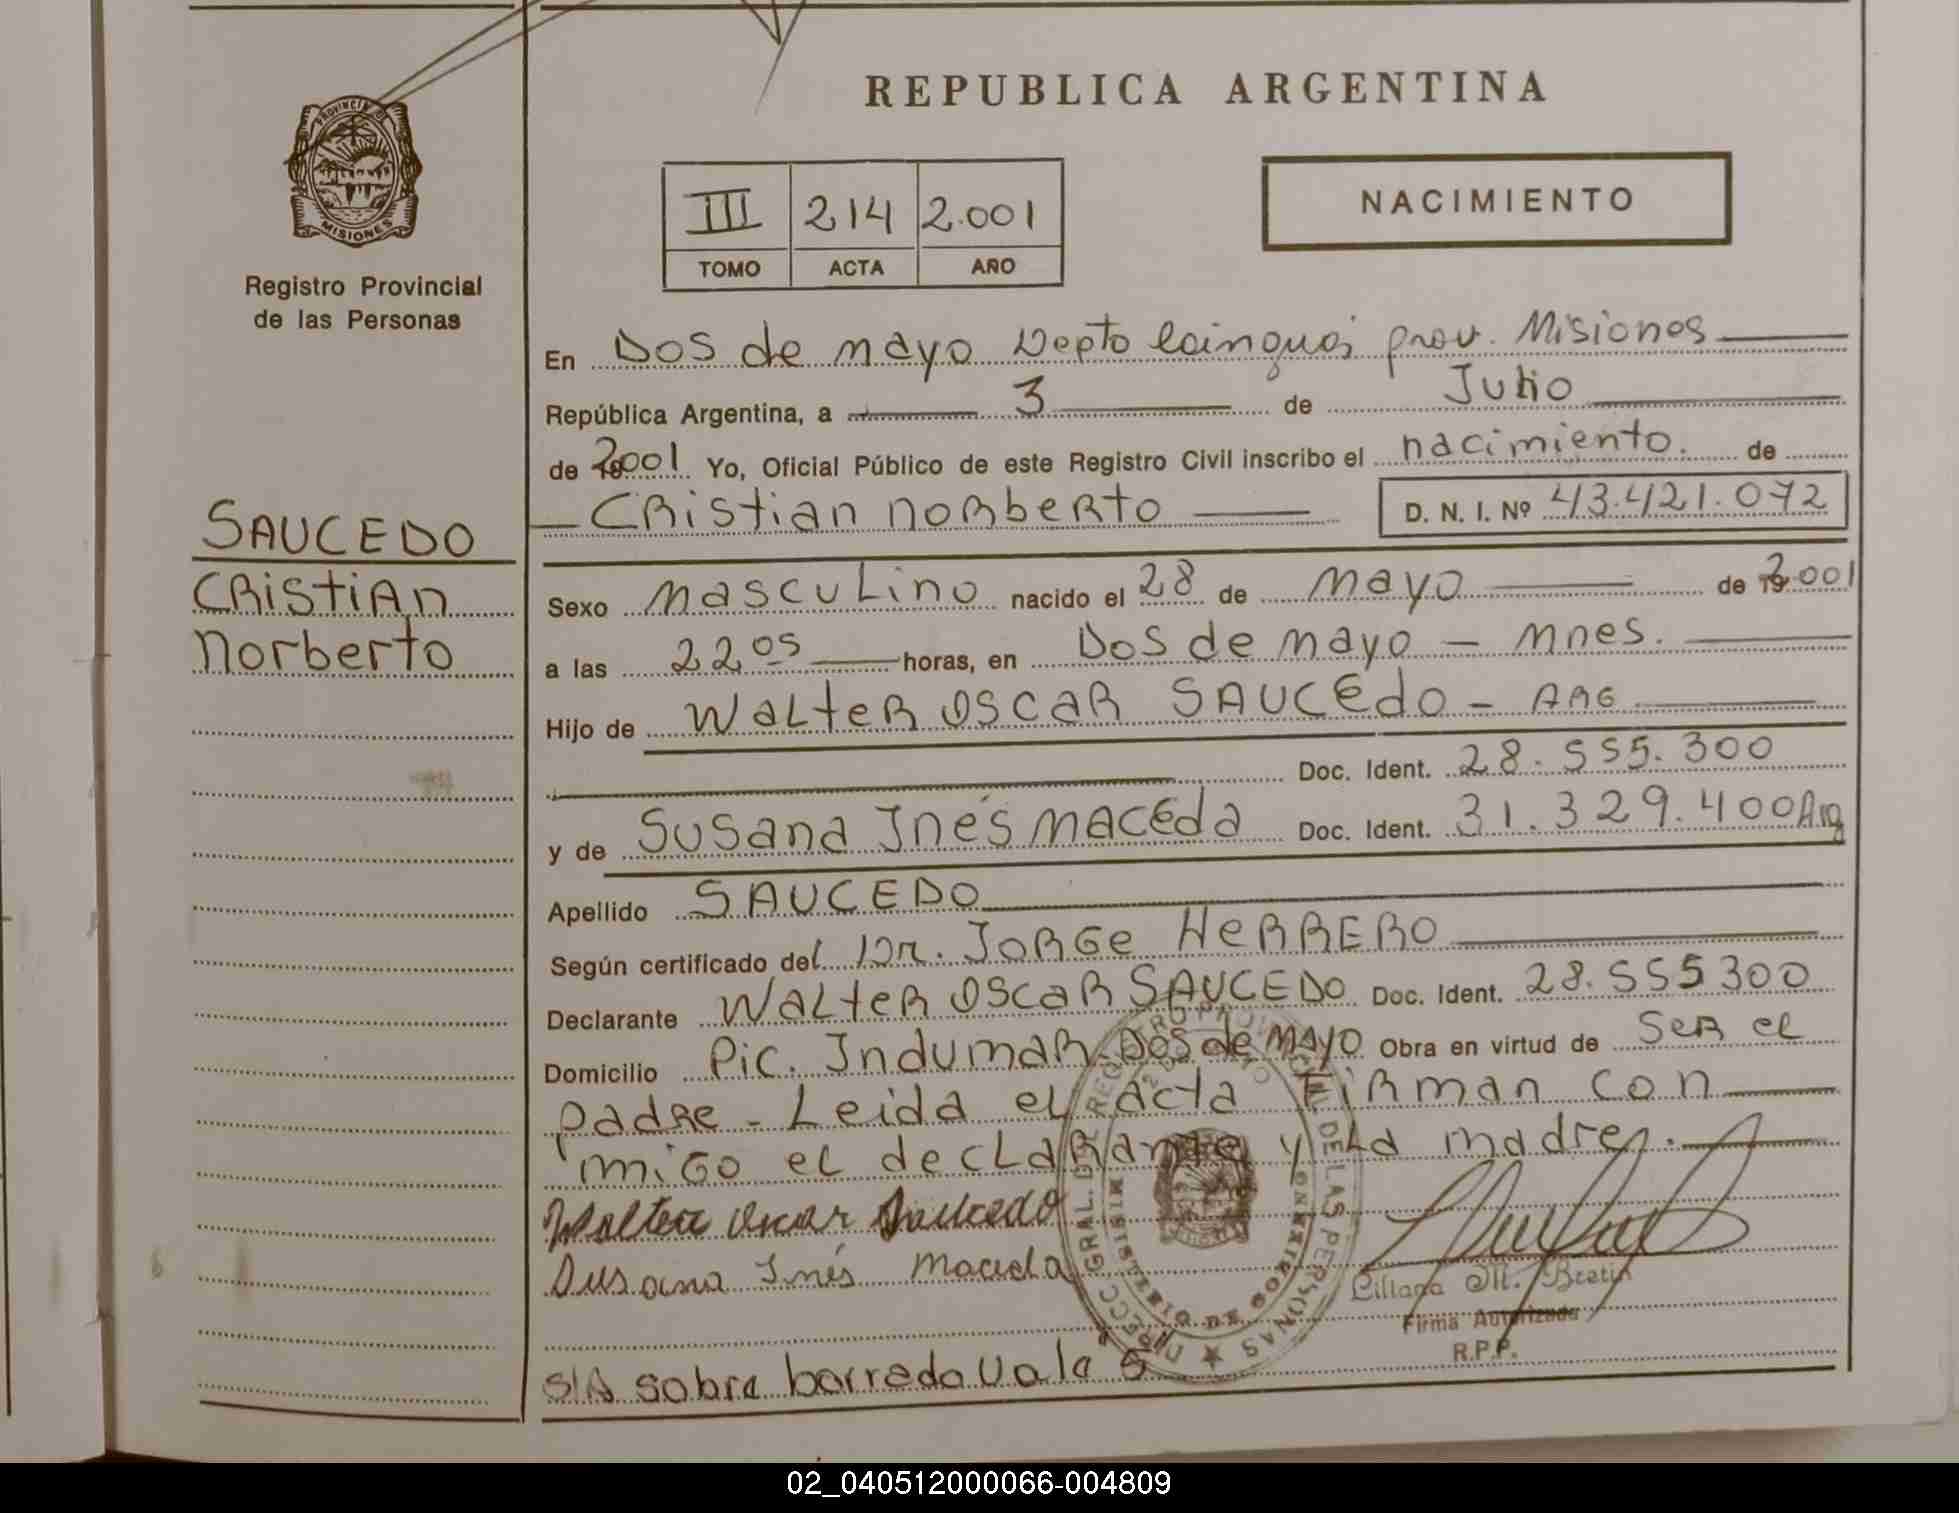 REPUBLICA ARGENTINA
PROVINCIA DE
MISIONES
Registro Provincial
de las Personas
III 214 2.001
TOMO ACTA AÑO
NACIMIENTO
En Dos de mayo Depto Cainguás prov. Misiones
República Argentina, a 3 de Julio
de 2001 Yo, Oficial Público de este Registro Civil inscribo el nacimiento. de
Cristian Norberto D. N. I. Nº 43.421.072
SAUCEDO
Cristian
Norberto
Sexo Masculino nacido el 28 de Mayo de 2.001
a las 22 05 horas, en Dos de mayo - Mnes.
Hijo de Walter Oscar SAUCEDO - ARG
Doc. Ident. 28.555.300
y de Susana Inés Maceda Doc. Ident. 31.329.400 Arg
Apellido SAUCEDO
Según certificado del Dr. Jorge Herrero
Declarante Walter Oscar SAUCEDO Doc. Ident. 28.555300
Domicilio Pic. Indumar Dos de Mayo Obra en virtud de Ser el
padre - Leida el acta Firman con
migo el declarante y La madre.
Walter Oscar Saucedo
Susana Inés Maceda
Liliana M.
Firma Autorizada
R.P.P.
S/A sobre borrado vale "5"
02_040512000066-004809